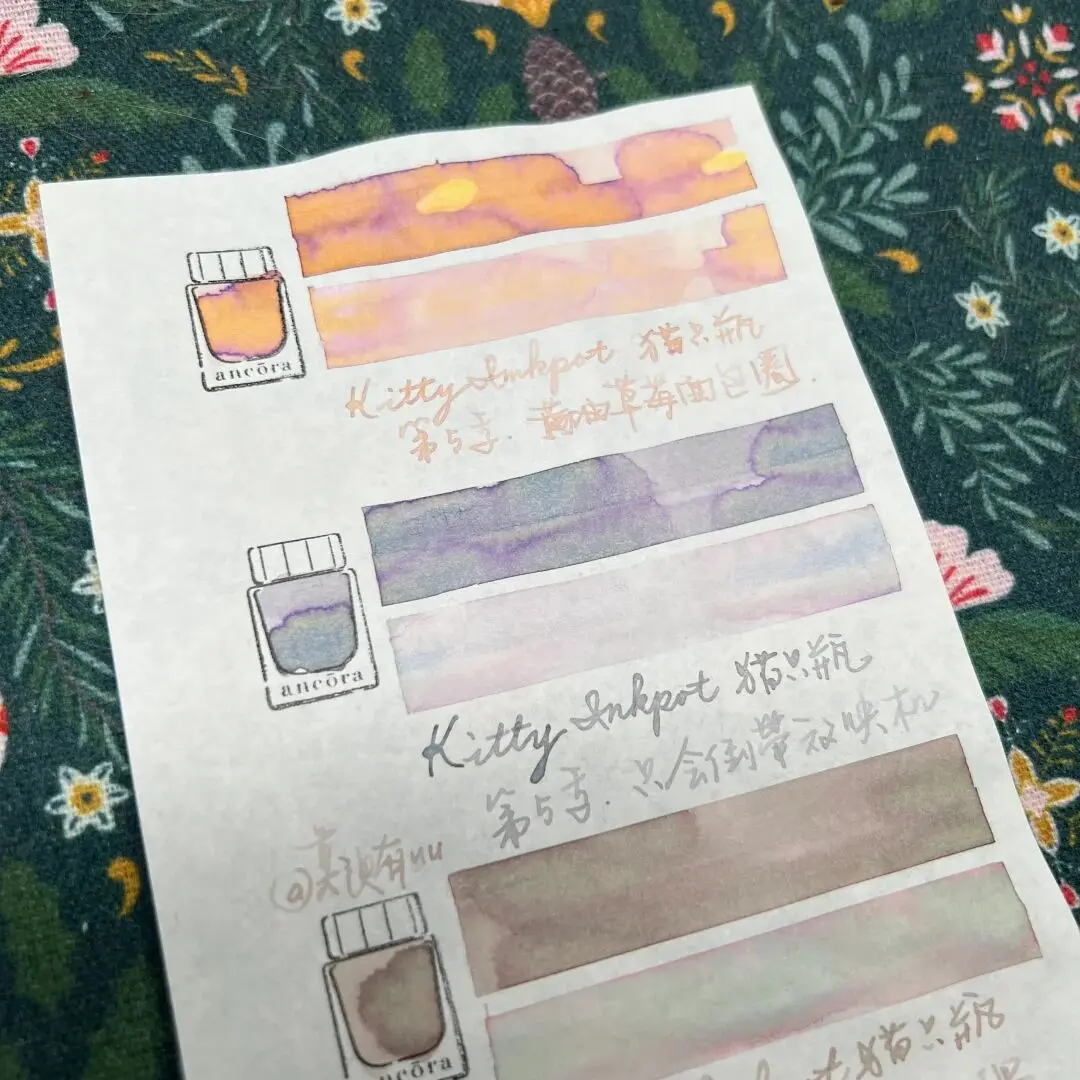 ancōra
Kitty Inkpot 猫只瓶
第5季. 黄油草莓面包圈.
ancōra
Kitty Inkpot 猫只瓶
第5季. 只会倒带放映机
ancōra
猫只瓶